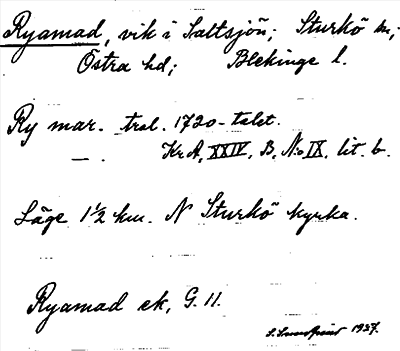 Ryamad, vik i Saltsjön; Sturkö sn;
Östra hd; Blekinge l.
Ry mar. trol. 1720-talet.
— . Kr A, XXIV, B, N:o IX, lit. b.
Läge 1½ km. N Sturkö kyrka.
Ryamad ek, G. 11.
1937.